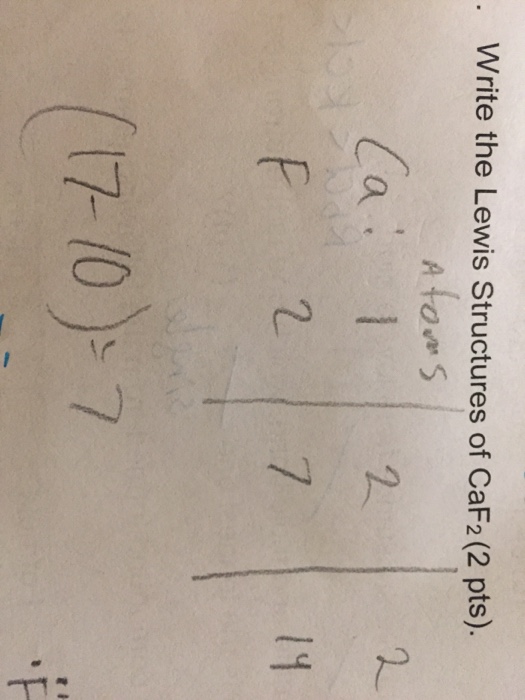 . Write the Lewis Structures of CaF2 (2 pts).
Atoms
Ca: 1 2 2
F 2 7 14
(17-10) = 7
F